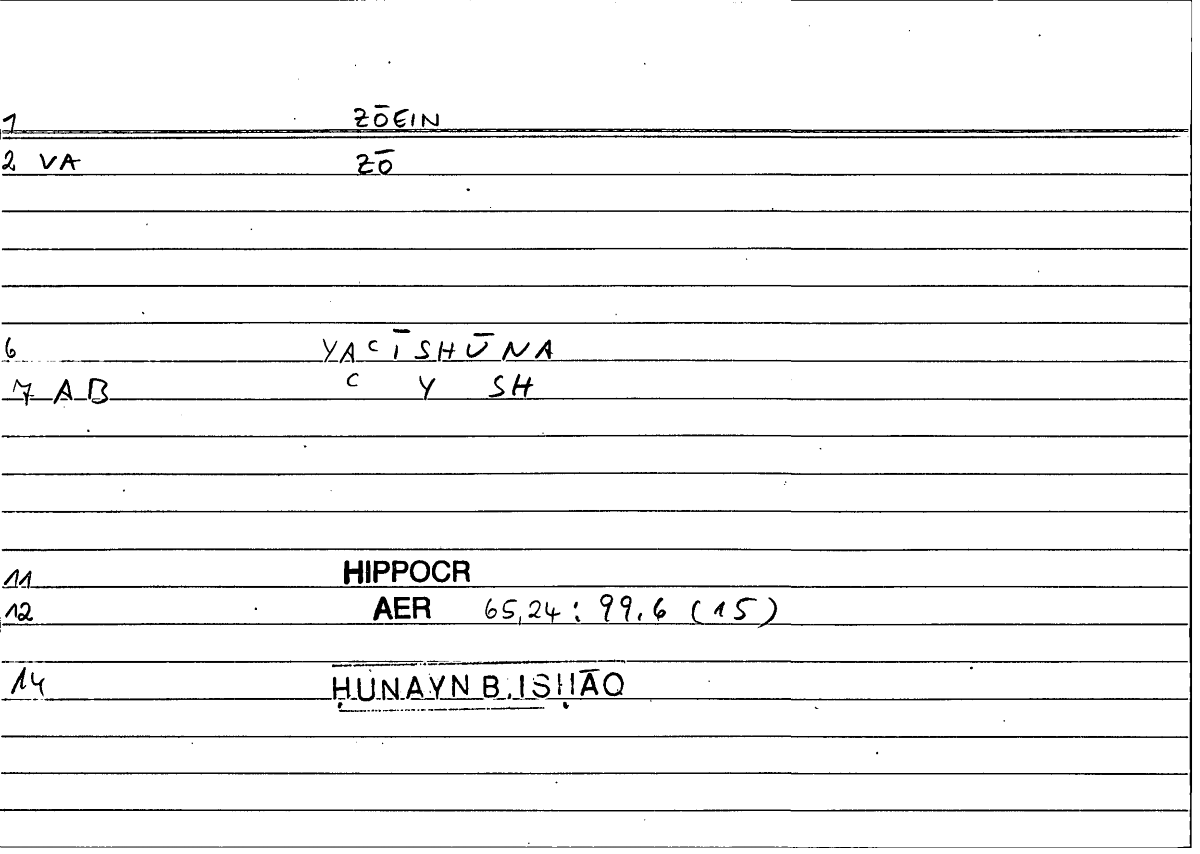 1 ZŌEIN
2 VA ZŌ
6 YAcĪSHŪNA
7 AB c Y SH
11 HIPPOCR
12 AER 65,24: 99,6 (15)
14 ḤUNAYN B. ISḤĀQ